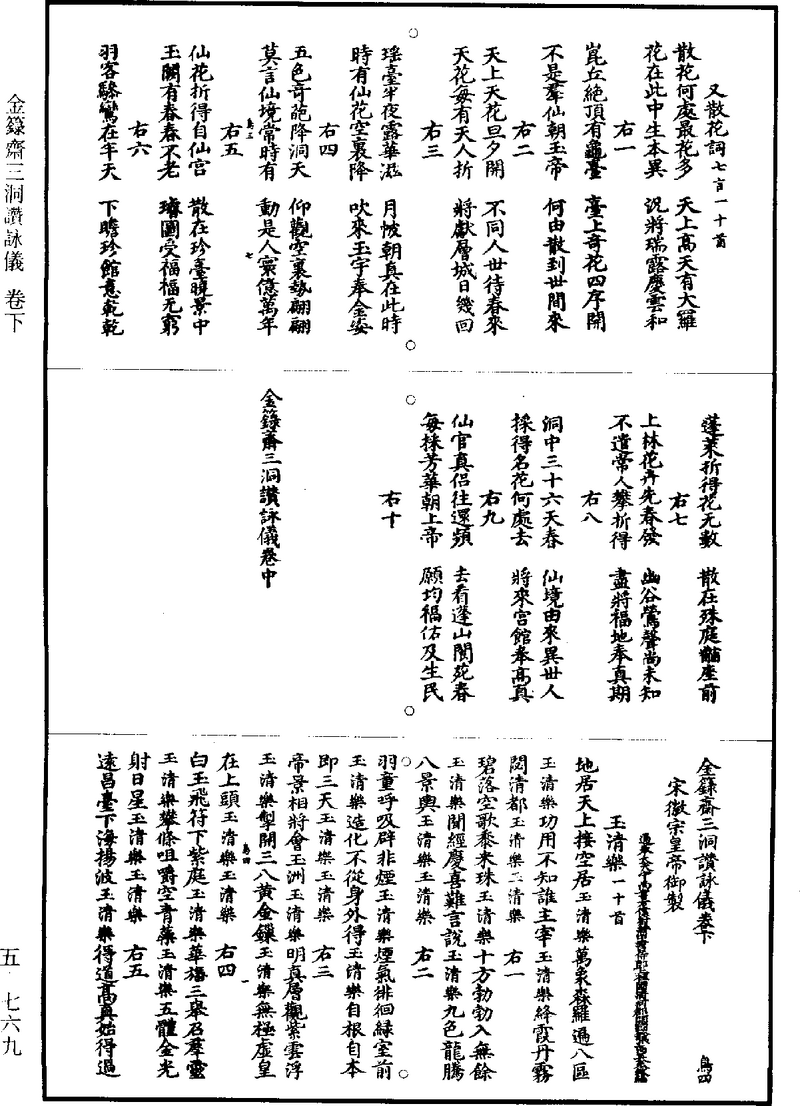 金籙齋三洞讚詠儀 卷下
五·七六九
又散花詞七言一十首
散花何處最花多 天上高天有大羅
花在此中生本異 況將瑞露慶雲和
右一
崑丘絕頂有龜臺 臺上奇花四序開
不是羣仙朝玉帝 何由散到世間來
右二
天上天花旦夕開 不同人世待春來
天花每有天人折 將獻層城日幾回
右三
瑤臺半夜露華滋 月帔朝真在此時
時有仙花空裏降 吹來玉宇奉金姿
右四
五色奇葩降洞天 仰觀空裏勢翩翩
莫言仙境常時有 動是人寰億萬年
右五
仙花折得自仙宮 散在珍臺曉景中
玉闕有春春不老 璿圖受福福无窮
右六
羽客驂鸞在半天 下瞻珍館意乾乾
蓬萊折得花无數 散在殊庭黼座前
右七
上林花卉先春發 幽谷鶯聲尚未知
不遣常人攀折得 盡將福地奉真期
右八
洞中三十六天春 仙境由來異世人
採得名花何處去 將來宮館奉高真
右九
仙官真侶往還頻 去看蓬山閬苑春
每採芳華朝上帝 願均福佑及生民
右十
金籙齋三洞讚詠儀卷中
金籙齋三洞讚詠儀卷下 鳥四
宋徽宗皇帝御製
玉清樂一十首
地居天上接空居玉清樂萬象森羅遍八區
玉清樂功用不知誰主宰玉清樂絳霞丹霧
閟清都玉清樂玉清樂 右一
碧落空歌黍米珠玉清樂十方勃勃入無餘
玉清樂聞經慶喜難言說玉清樂九色龍騰
八景輿玉清樂玉清樂 右二
羽童呼吸辟非煙玉清樂煙氣徘徊綠室前
玉清樂造化不從身外得玉清樂自根自本
即三天玉清樂玉清樂 右三
帝景相將會玉洲玉清樂明真層觀紫雲浮
玉清樂製開三八黃金鏁玉清樂無極虛皇
在上頭玉清樂玉清樂 右四
白玉飛符下紫庭玉清樂華旛三舉召羣靈
玉清樂攀條咀嚼空青蘂玉清樂五體金光
射日星玉清樂玉清樂 右五
遠昌臺下海揚波玉清樂得道高真始得過